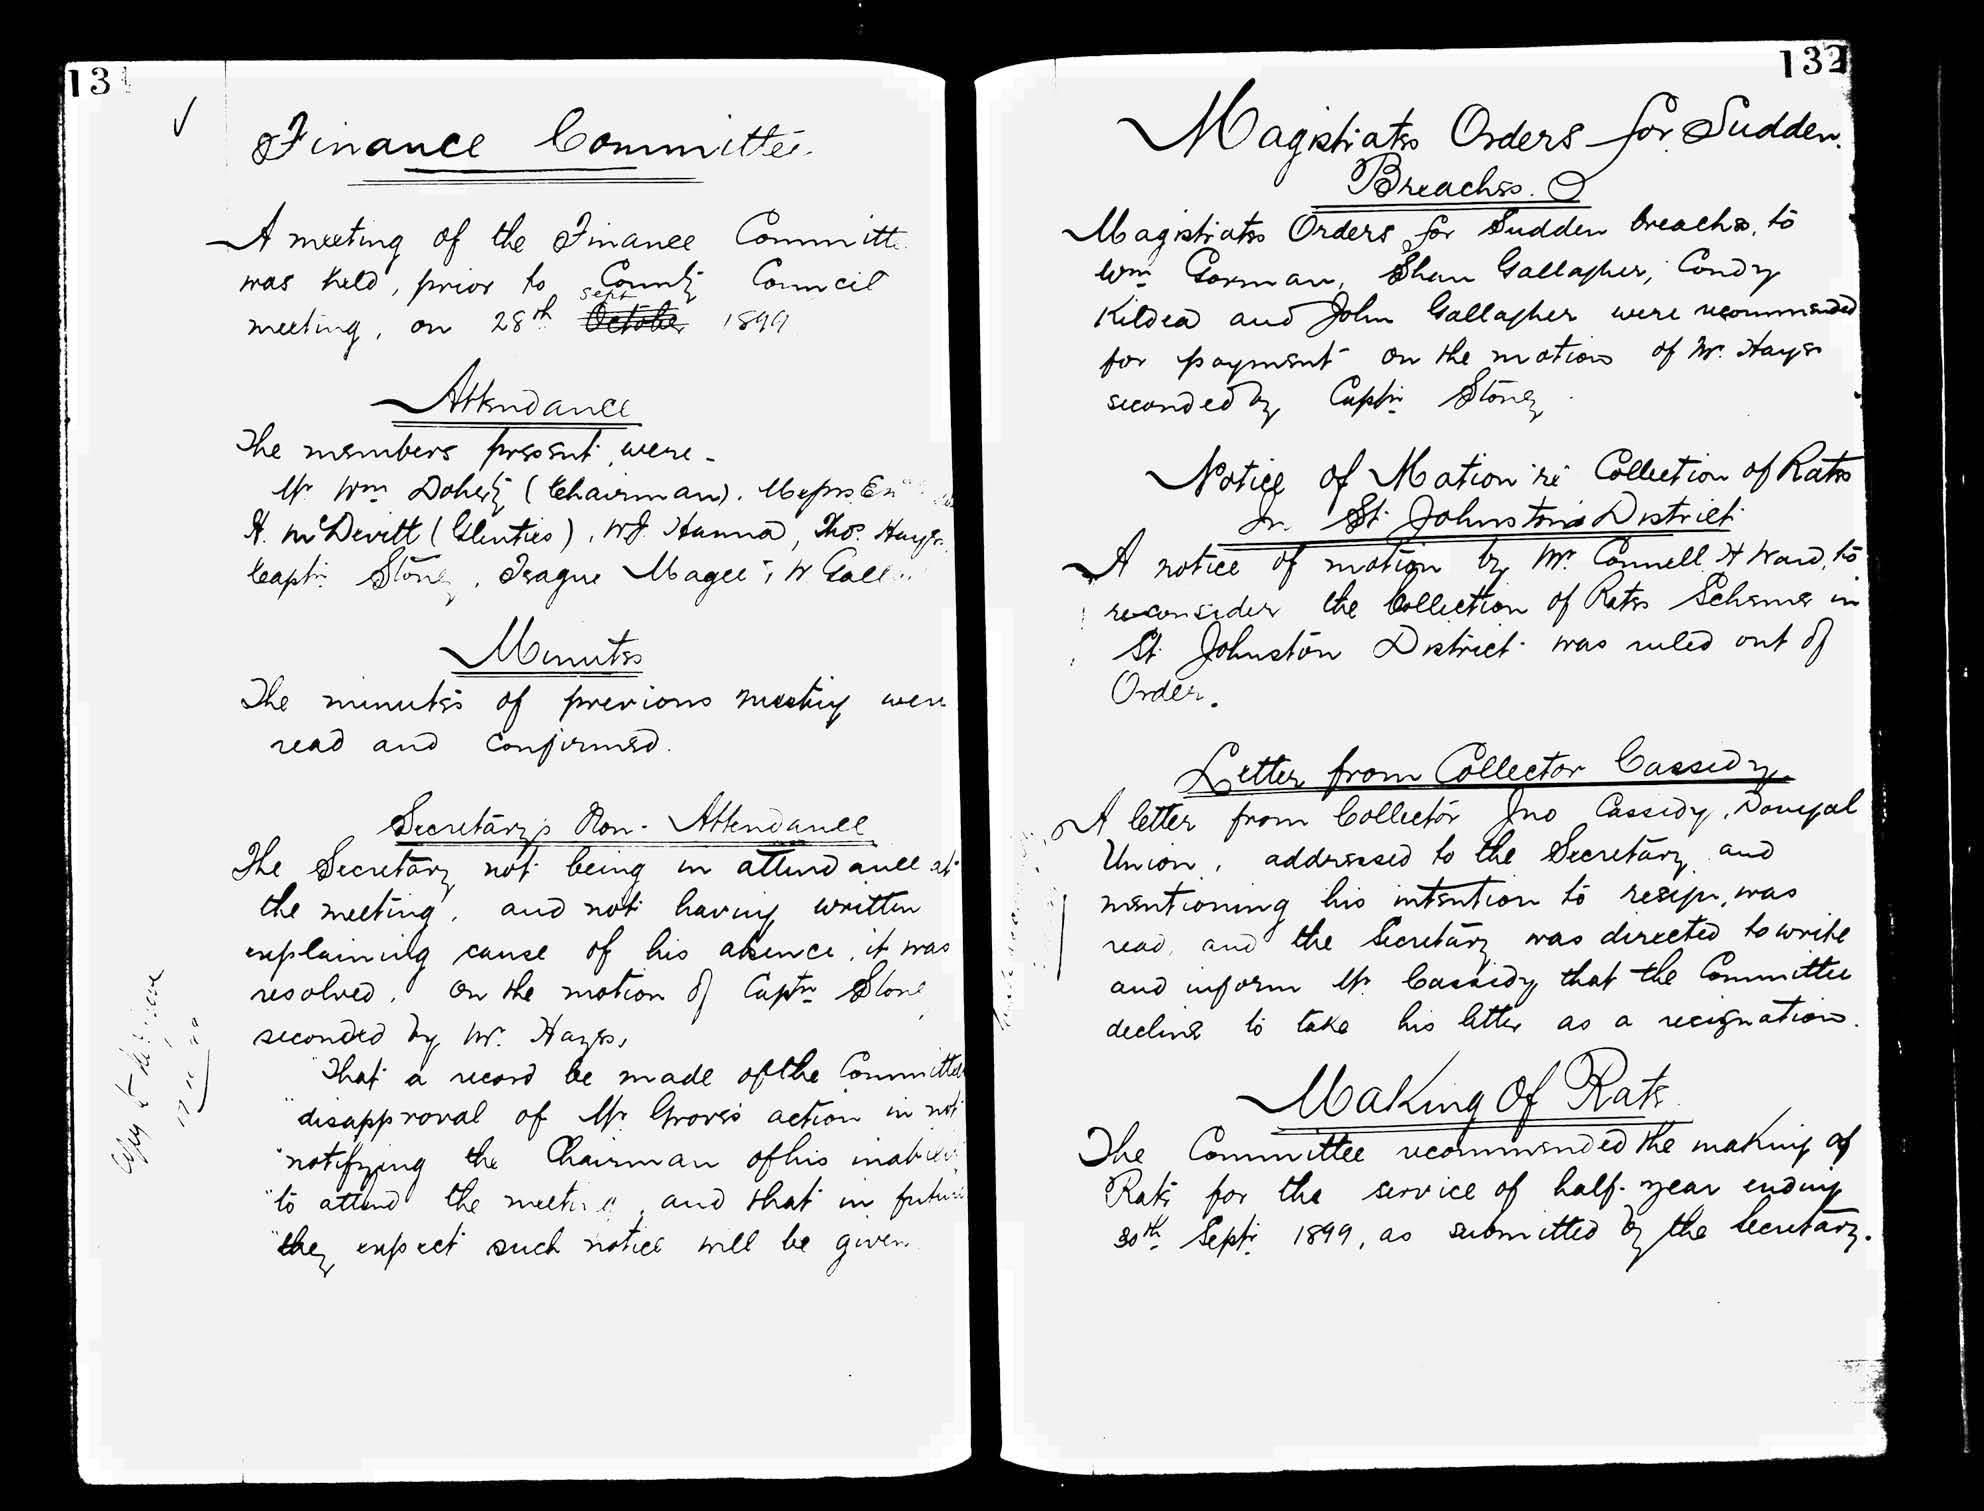 13
Finance Committee.
A meeting of the Finance Committe
was held, prior to County Council
sept
meeting, on 28th October 1899
Attendance
The members present were -
Mr Wm Doherty (Chairman). Messrs
H. McDevitt (Glenties), W.J. Hanna, Thos. Hayes,
Captn Stoney, Teague Magee, W
Minutes
The minutes of previous meeting were
read and confirmed.
Secretary's Non-Attendance
The Secretary not being in attendance at
the meeting, and not having written
explaining cause of his absence, it was
resolved, on the motion of Captn Stone
seconded by Mr. Hayes,
"That a record be made of the Committee
"disapproval of Mr Groves's action in not
"notifying the Chairman of his
"to attend the meeting, and that in future
"they expect such notice will be given
132
Magistrates Orders for Sudden
Breaches.
Magistrates Orders for Sudden breaches, to
Wm Gorman, Shan Gallagher, Condy
Kildea and John Gallagher were recommended
for payment on the motion of Mr. Hayes
seconded by Captn Stoney
Notice of Motion re Collection of Rates
In St Johnston District
A notice of motion by Mr. Connell H Ward, to
re-consider the Collection of Rates Scheme in
St Johnston District was ruled out of
Order.
Letter from Collector Cassidy
A letter from Collector Jno Cassidy, Donegal
Union, addressed to the Secretary and
mentioning his intention to resign, was
read, and the Secretary was directed to write
and inform Mr Cassidy that the Committee
decline to take his letter as a resignation.
Making Of Rate
The Committee recommended the making of
Rate for the service of half-year ending
30th Septr 1899, as submitted by the Secretary.